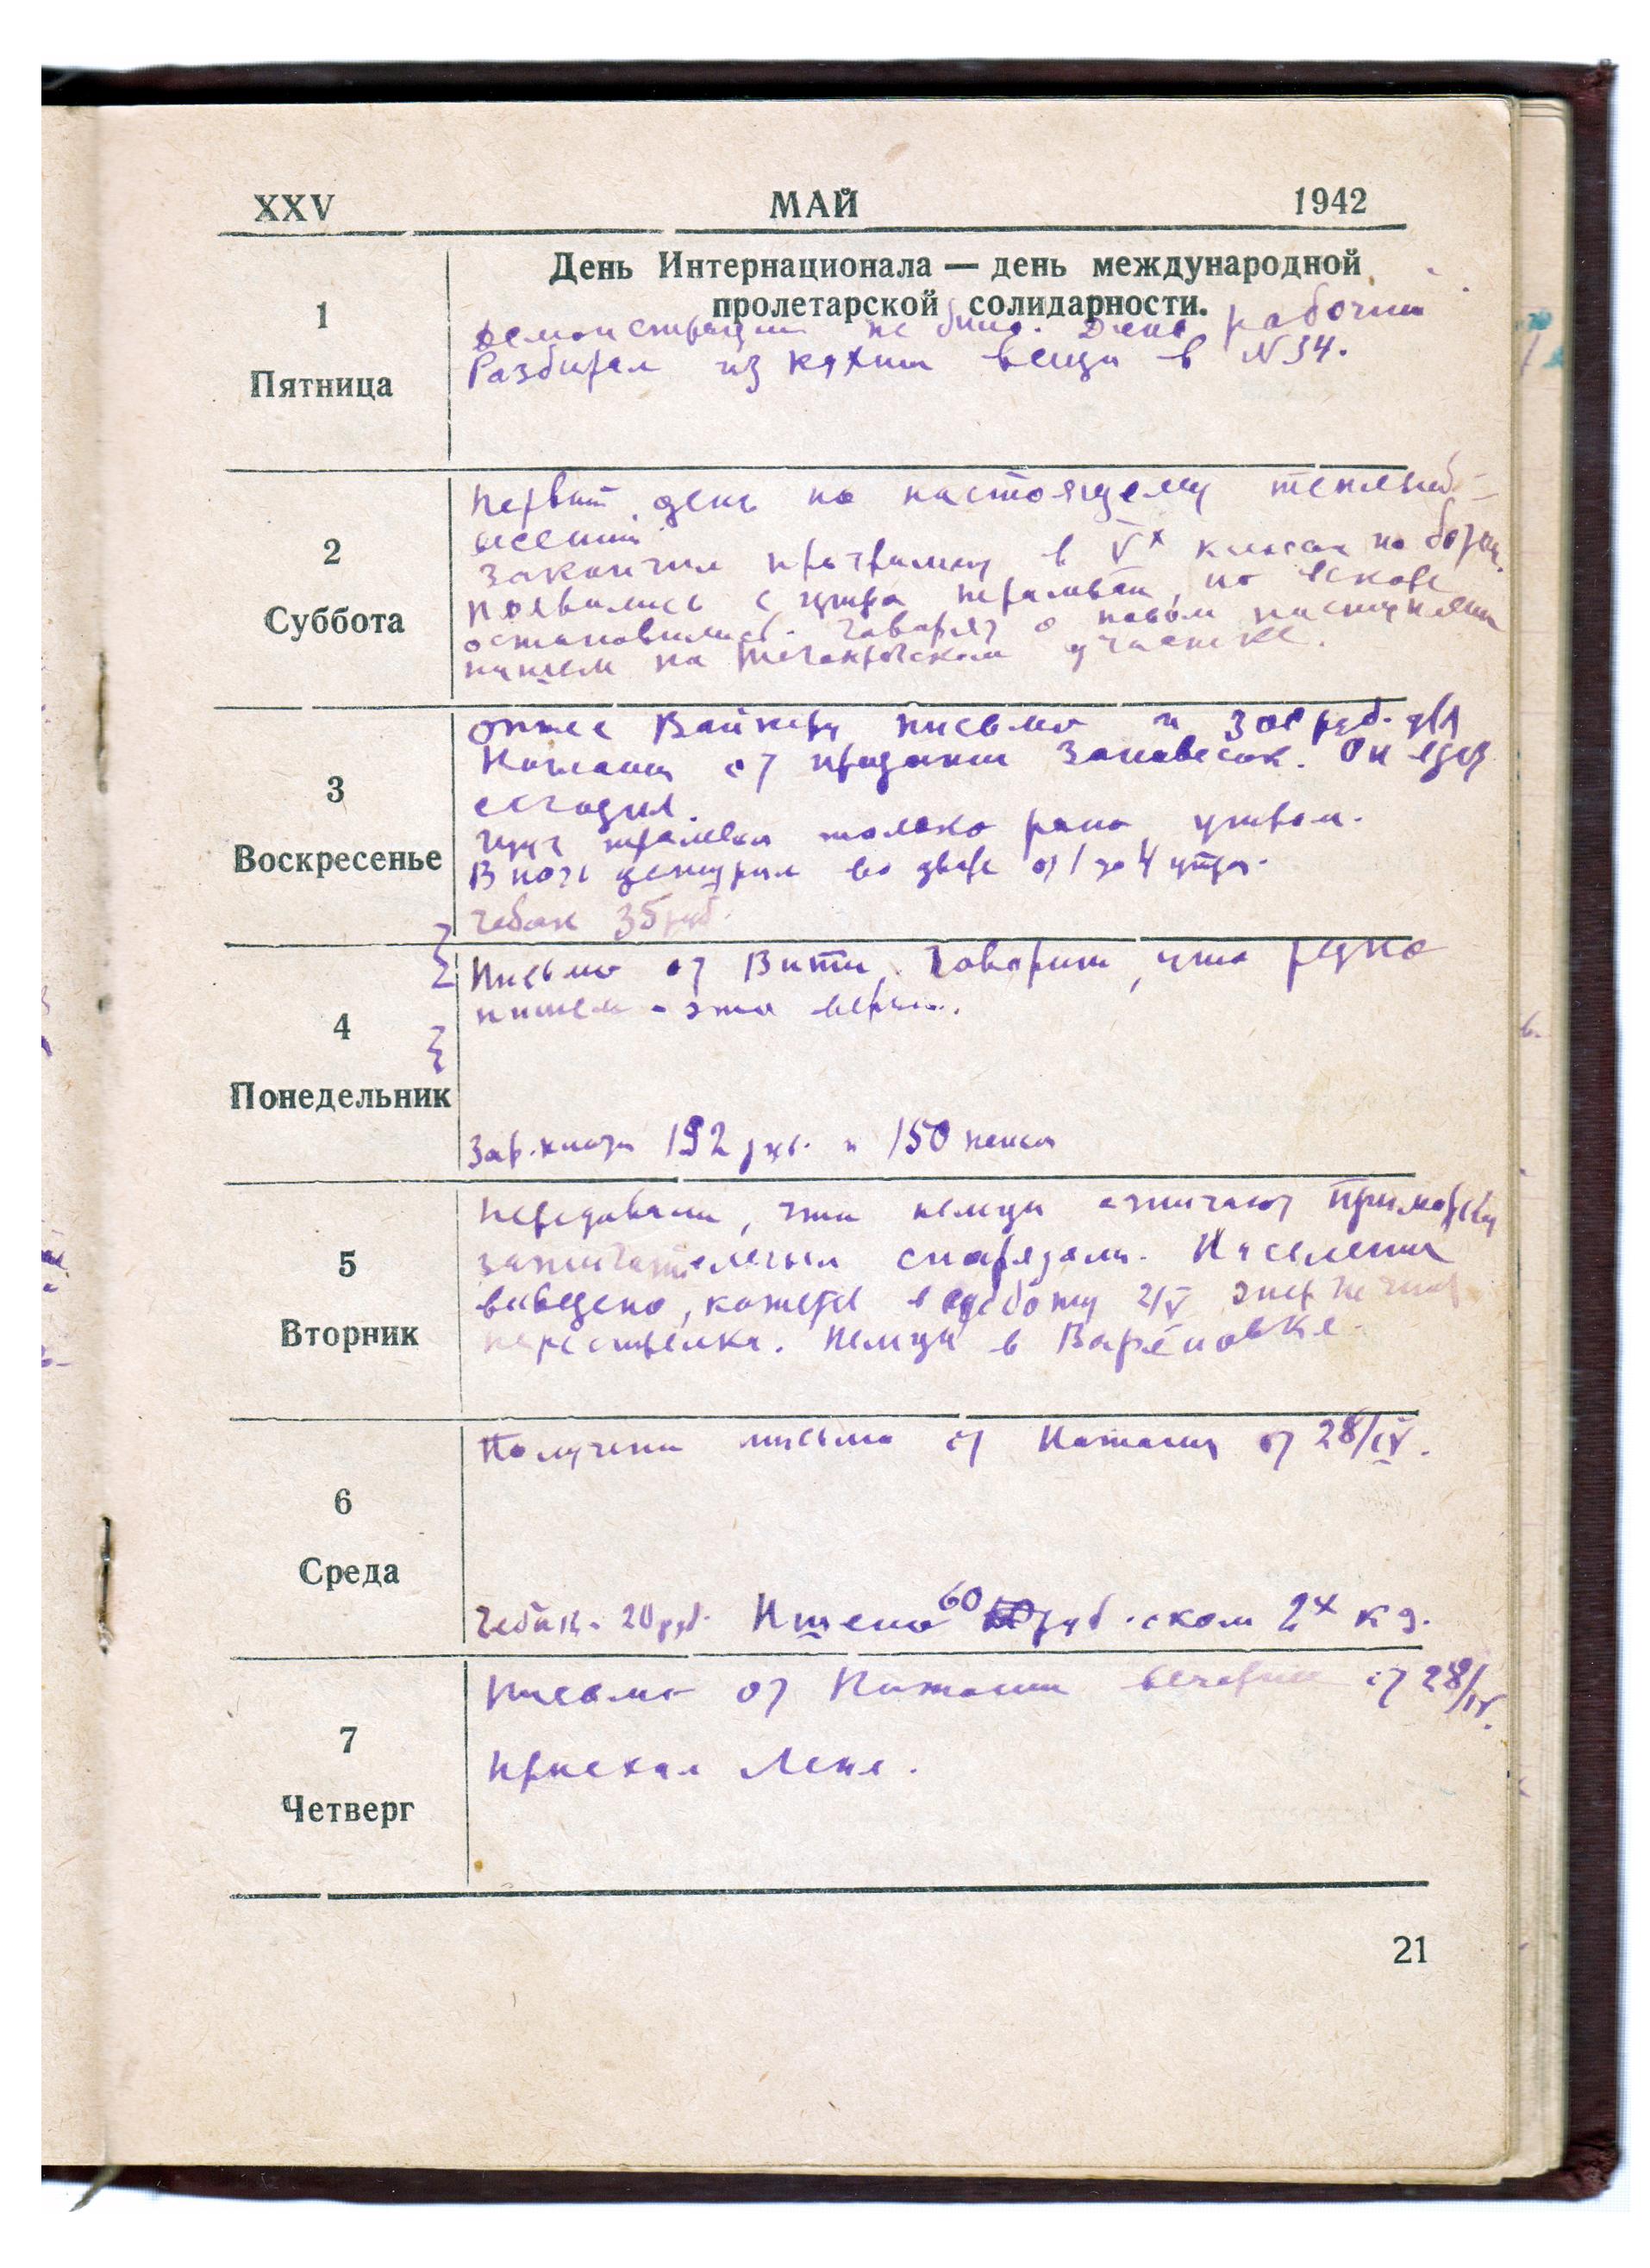 XXV МАЙ 1942
День Интернационала — день международной
пролетарской солидарности.
1
Пятница
Демонстрации не было. День рабочий
Разбирал из кухни вещи в N 34.
2
Суббота
Первый день по настоящему теплый
весенний
Закончил программу в Vх классах по
Появились с утра трамваи, но вскоре
остановились. Говорят о новом наступлении
нашем на Таганрогском участке.
3
Воскресенье
Отнес письмо и 300 руб. для
Наташи от продажи занавесок. Он едет
сегодня.
Идут трамваи только рано утром.
В ночь дежурил во дворе от 1 до 4 утра.
Чебак 35 руб.
4
Понедельник
Письмо от Вити. Говорит, что редко
пишем - это верно.
Зар.плата 192 руб. и 150 пенсия
5
Вторник
Передавали, что немцы Приморку
зажигательными снарядами. Население
выведено, кажется в субботу 2/V
перестрелка. Немцы в Варёновке.
6
Среда
Получено письмо от Наташи от 28/IV.
Чебак. 20 руб. Пшено 60 руб. 2х кг.
7
Четверг
Письмо от Наташи от 28/IV.
Приехал Леня.
21